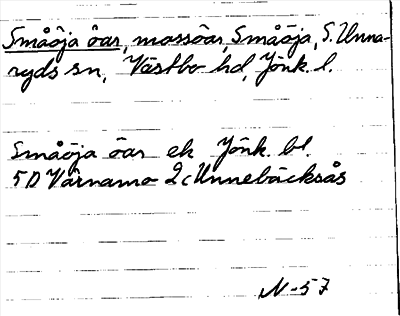 Småöja öar, mossöar, Småöja, S. Unna-
ryds sn, Västbo hd, Jönk. l.
Småöja öar ek Jönk. bl.
5D Värnamo 2c Unnebäcksås
N-57